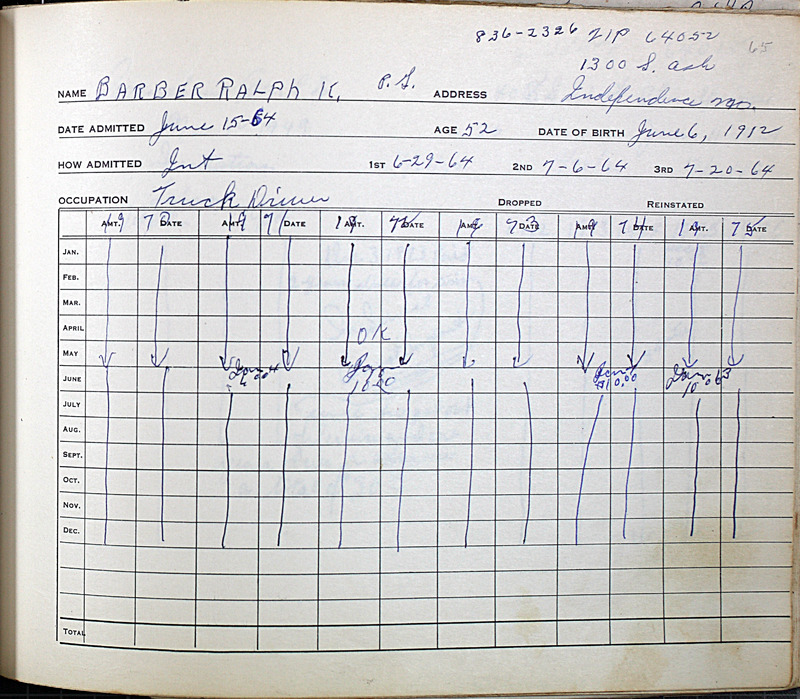 836-2326 ZIP 64052
65
1300 S. Ash
NAME BARBER RALPH K. P.S. ADDRESS Independence Mo.
DATE ADMITTED June 15-64 AGE 52 DATE OF BIRTH June 6, 1912
HOW ADMITTED Int 1ST 6-29-64 2ND 7-6-64 3RD 7-20-64
OCCUPATION Truck Driver DROPPED REINSTATED
AMT. DATE AMT. DATE AMT. DATE AMT. DATE AMT. DATE AMT. DATE
19 70 19 71 19 72 19 73 19 74 19 75
JAN.
FEB.
MAR.
APRIL OK
MAY
JUNE $10.00
JULY
AUG.
SEPT.
OCT.
NOV.
DEC.
TOTAL